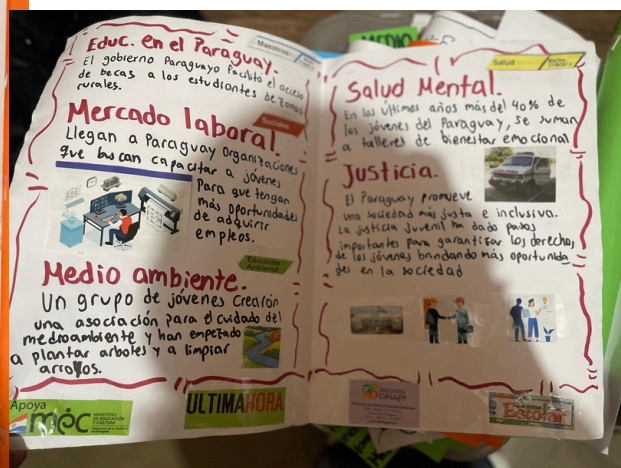 Educ. en el Paraguay.
Maestros
El gobierno Paraguayo facilitó el acceso
de becas a los estudiantes de zonas
rurales.
Mercado laboral.
Sociales
Llegan a Paraguay Organizaciones
que buscan capacitar a jóvenes
Para que tengan
más oportunidades
de adquirir
empleos.
Educación
Ambiental
Medio ambiente.
Un grupo de jóvenes Crearón
una asociación para el cuidado del
medioambiente y han empezado
a plantar arboles y a limpiar
arroyos.
Apoya
mec
MINISTERIO
DE EDUCACIÓN
Y CULTURA
ULTIMAHORA
MEDIO
Salud
Martes
Salud Mental.
En los últimos años más del 40% de
los jóvenes del Paraguay, se suman
a talleres de bienestar emocional
Justicia.
El Paraguay promueve
una sociedad más justa e inclusiva.
La justicia Juvenil ha dado pasos
importantes para garantizar los derechos
de los jóvenes brindando más oportunida
des en la sociedad
DINAPI
Escolar